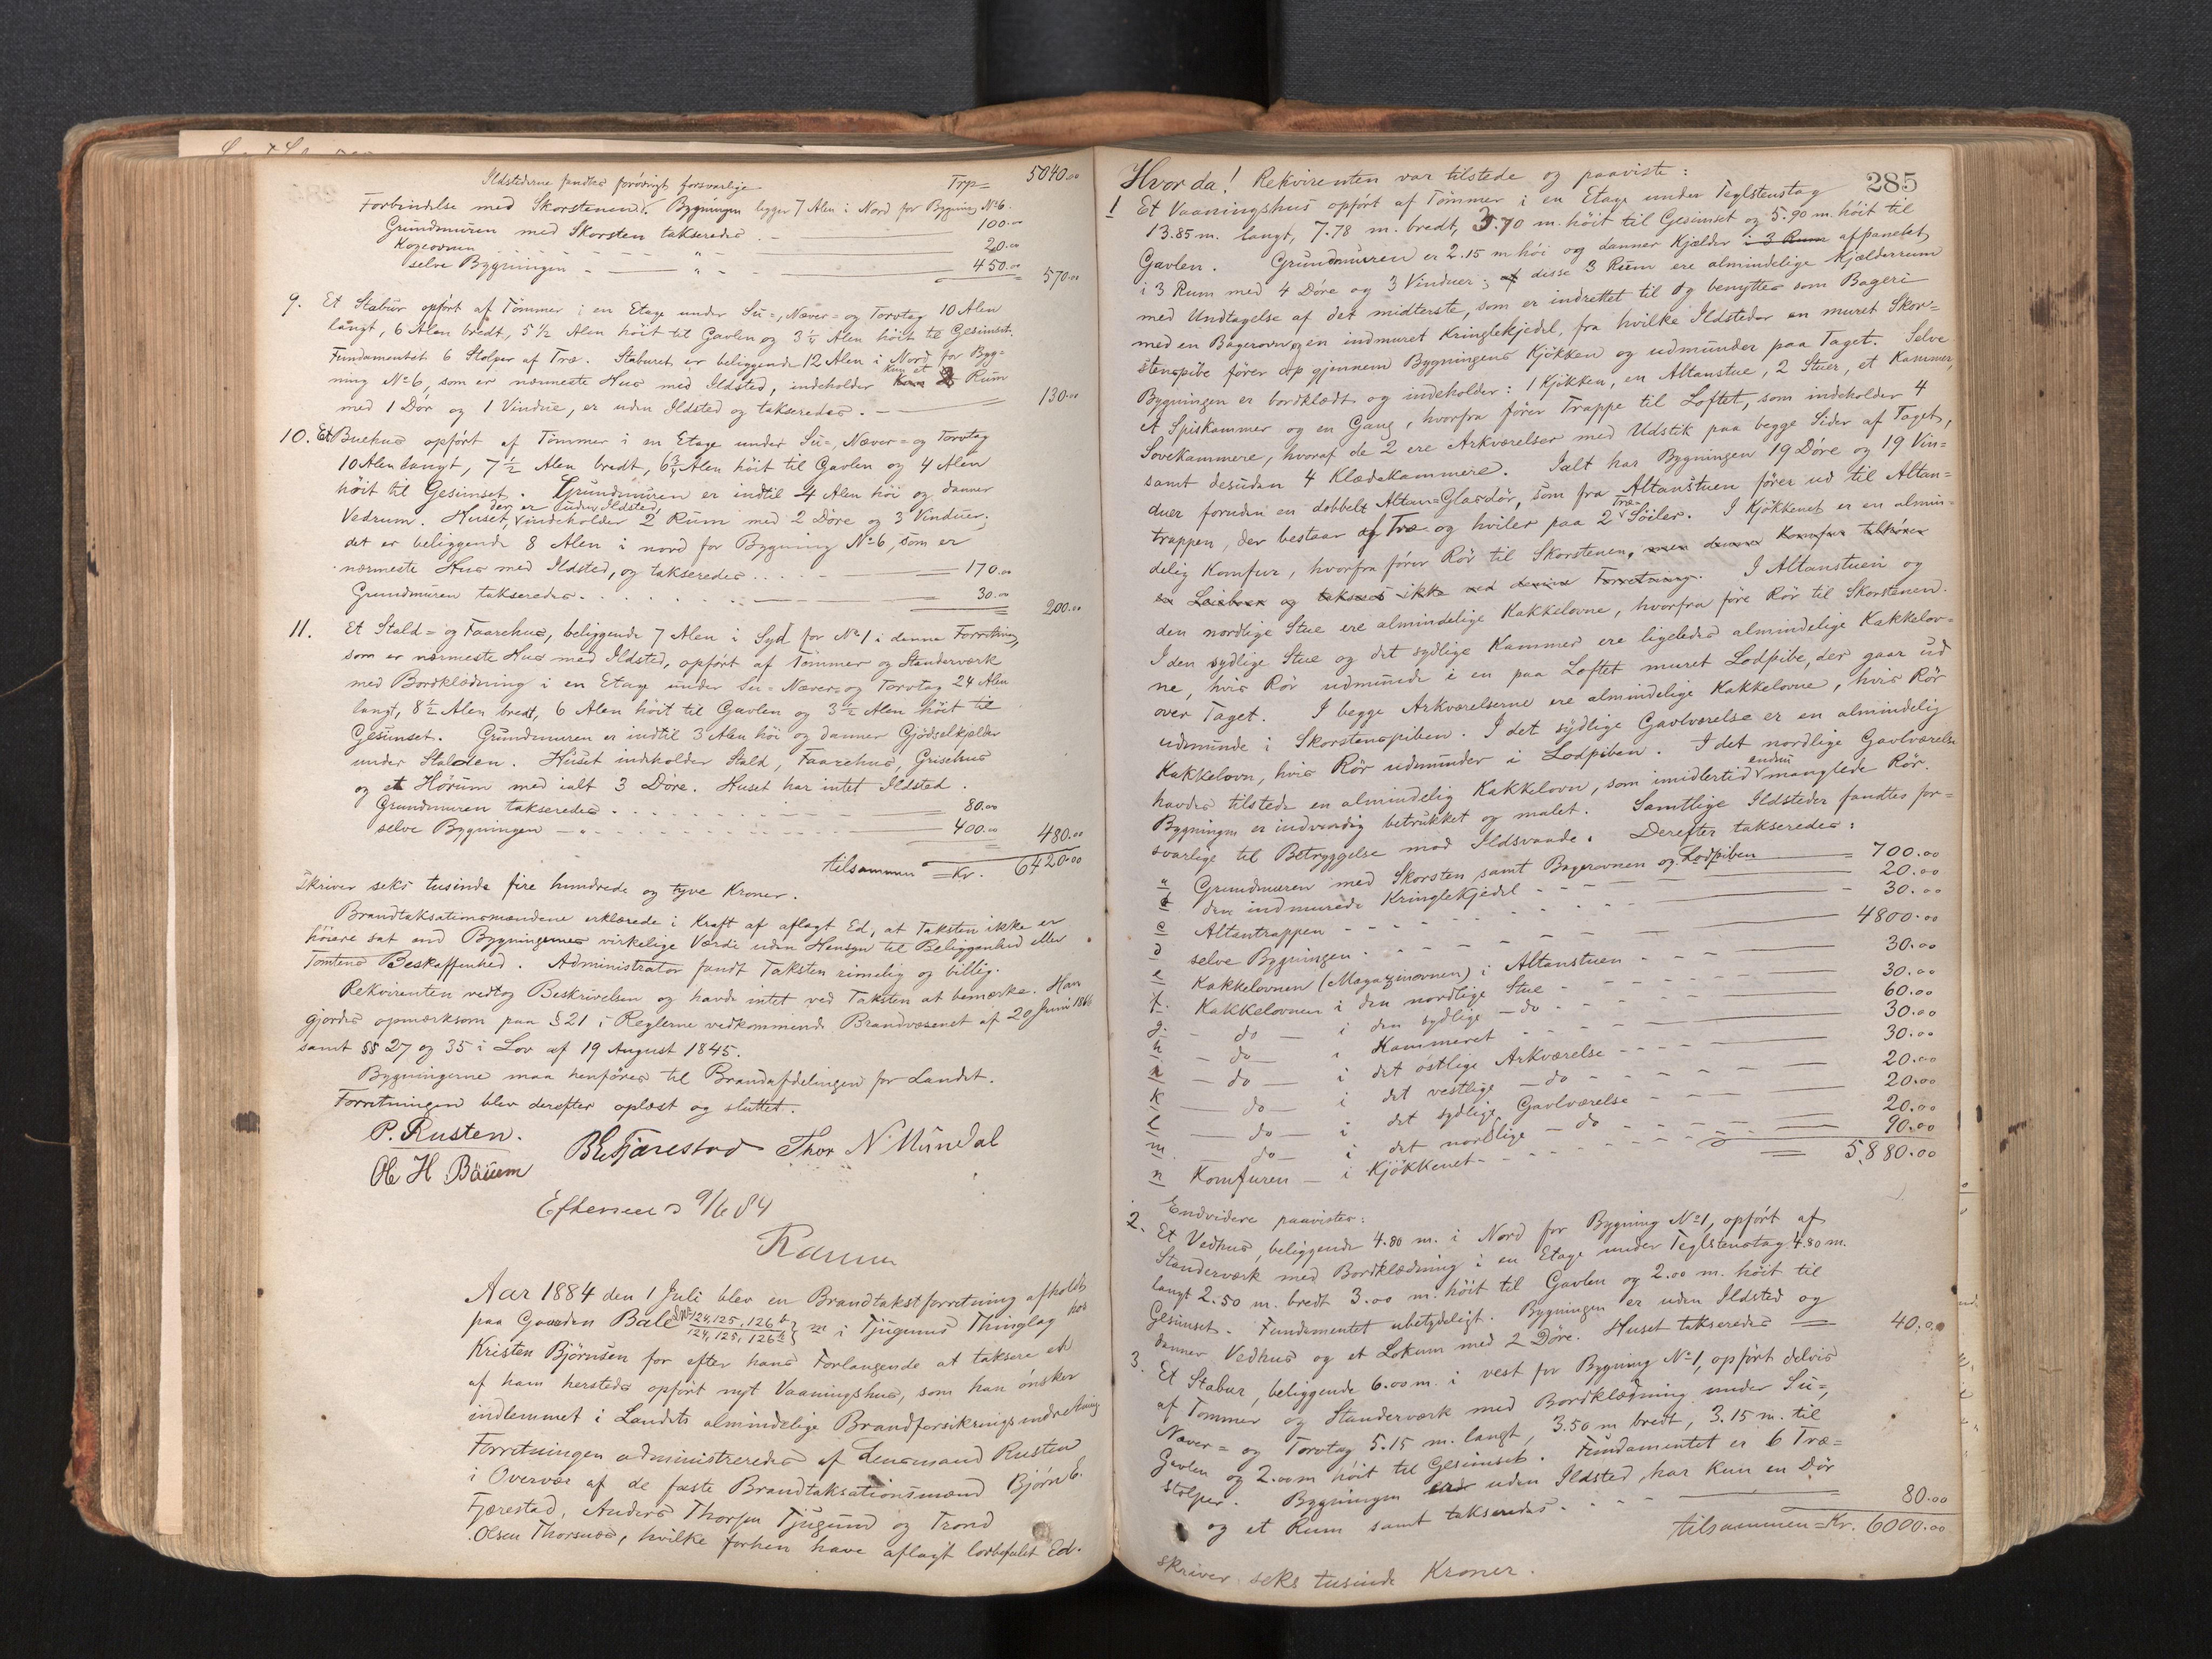 Ildstederne fandtes forøvrigt forsvarlige
Trp= 5040.00
Forbindelse med Skorstenen. Bygningen ligger 7 Alen i Nord for Bygning No 6.
Grundmuren med Skorsten takseredes . — 100.00
Kogeovnen — " — 20.00
selve Bygningen — " — 450.00 570.00
9. Et Stabur opført af Tömmer i en Etage under Su=, Næver= og Torvtag 10 Alen
langt, 6 Alen bredt, 5 1/2 Alen höit til Gavlen og 3 1/4 Alen höit til Gesimset.
Fundamentet 6 Stolper af Træ. Staburet er beliggende 12 Alen i Nord for Byg=
ning No 6, som er nærmeste Hus med Ildsted, indeholder kun et Rum
med 1 Dör og 1 Vindue, er uden Ildsted og takseredes . — 130.00
10. Et Buehus opfört af Tömmer i en Etage under Su=, Næver= og Torvtag
10 Alen langt, 7 1/2 Alen bredt, 6 3/4 Alen höit til Gavlen og 4 Alen
höit til Gesimset. Grundmuren er indtil 4 Alen höi og danner
Vedrum. Huset, der er uden Ildsted, indeholder 2 Rum med 2 Döre og 3 Vinduer;
det er beliggende 8 Alen i nord for Bygning No 6, som er
nærmeste Hus med Ildsted, og takseredes . . . — 170.00
Grundmuren takseredes . . . — 30.00 200.00
11. Et Stald= og Faarehus, beliggende 7 Alen i Syd for No 1 i denne Forretning,
som er nærmeste Hus med Ildsted, opfört af Tömmer og Standerværk
med Bordklædning i en Etage under Su= Næver= og Torvtag 24 Alen
langt, 8 1/2 Alen bredt, 6 Alen höit til Gavlen og 3 1/2 Alen höit til
Gesimset. Grundmuren er indtil 3 Alen höi og danner Gjödselkjælder
under Stalden. Huset indeholder Stald, Faarehus, Grisehus
og et Hörum med ialt 3 Döre. Huset har intet Ildsted.
Grundmuren takseredes . . . — 80.00
selve Bygningen — " . . . — 400.00 480.00
tilsammen = Kr. 6420.00
Skriver seks tusinde fire hundrede og tyve Kroner.
Brandtaksationsmændene erklærede i Kraft af aflagt Ed, at Taksten ikke er
höiere sat end Bygningernes virkelige Værdi uden Hensyn til Beliggenhed eller
Tomtens Beskaffenhed. Administrator fandt Taksten rimelig og billig.
Rekvirenten vedtog Beskrivelsen og havde intet ved Taksten at bemærke. Han
gjordes opmærksom paa § 21 i Reglerne vedkommende Brandvæsenet af 20 Juni 1866
samt §§ 27 og 35 i Lov af 19 August 1845.
Bygningerne maa henföres til Brandafdelingen for Landet.
Forretningen blev derefter oplæst og sluttet.
P. Rusten.
B E Fjærestad Thor N. Mundal
Ole H Bäuem
Efterseet 9/6 84
Aar 1884 den 1 Juli blev en Brandtakstforretning afholdt
paa Gaarden Bale LNo 124, 125, 126 b / 124, 125, 126 b i Tjugums Thinglag hos
Kristen Björnsen for efter hans Forlangende at taksere et
af ham hersteds opfört nyt Vaaningshus, som han önsker
indlemmet i Landets almindelige Brandforsikringsindretning
Forretningen administreredes af Lensmand Rusten
i Overvær af de faste Brandtaksationsmænd Björn E.
Fjærestad, Anders Thorsen Tjugum og Trond
Olsen Thorsnæs, hvilke forhen have aflagt lovbefalet Ed.
285
Hvor da! Rekvirenten var tilstede og paaviste:
1 Et Vaaningshus opfört af Tömmer i en Etage under Teglstenstag
13.85 m. langt, 7.78 m. bredt, 3.70 m. höit til Gesimset og 5.90 m. höit til
Gavlen. Grundmuren er 2.15 m höi og danner Kjælder i 3 Rum afpanelet
i 3 Rum med 4 Döre og 3 Vinduer; af disse 3 Rum ere almindelige Kjælderrum
med Undtagelse af det midterste, som er indrettet til og benyttes som Bageri
med en Bagerovn og en indmuret Kringlekjedel, fra hvilke Ildsteder en muret Skor=
stenspibe förer op gjennem Bygningens Kjökken og udmunder paa Taget. Selve
Bygningen er bordklædt og indeholder: 1 Kjökken, en Altanstue, 2 Stuer, et Kammer,
et Spiskammer og en Gang, hvorfra förer Trappe til Loftet, som indeholder 4
Sovekammere, hvoraf de 2 ere Arkværelser med Udstik paa begge Sider af Taget,
samt desuden 4 Klædekammere. Ialt har Bygningen 19 Döre og 19 Vin=
duer foruden en dobbelt Altan=Glasdör, som fra Altanstuen förer ud til Altan=
trappen, der bestaar af Træ og hviler paa 2 Træ= Söiler. I Kjökkenet er en almin=
delig Komfur, hvorfra förer Rör til Skorstenen, men denne Komfur tilhörer
en Leieboer og takseres ikke ved denne Forretning. I Altanstuen og
den nordlige Stue ere almindelige Kakkelovne, hvorfra före Rör til Skorstenen.
I den sydlige Stue og det sydlige Kammer ere ligeledes almindelige Kakkelov=
ne, hvis Rör udmunde i en paa Loftet muret Lodpibe, der gaar ud
over Taget. I begge Arkværelserne ere almindelige Kakkelovne, hvis Rör
udmunde i Skorstenspiben. I det sydlige Gavlværelse er en almindelig
Kakkelovn, hvis Rör udmunder i Lodpiben. I det nordlige Gavlværelse
havdes tilstede en almindelig Kakkelovn, som imidlertid endnu manglede Rör.
Bygningen er indvendig betrukket og malet. Samtlige Ildsteder fandtes for=
svarlige til Betryggelse mod Ildsvaade. Derefter takseredes:
a Grundmuren med Skorsten samt Bagerovnen og Lodpiben — 700.00
b den indmurede Kringlekjedel — 20.00
c Altantrappen — 30.00
d selve Bygningen — 4800.00
e Kakkelovnen (Magazinovnen) i Altanstuen — 30.00
f. Kakkelovnen i den nordlige Stue — 30.00
g. — do — i den sydlige — do — 60.00
h — do — i Kammeret — 30.00
i — do — i det östlige Arkværelse — 30.00
k — do — i det vestlige — do — 20.00
l — do — i det sydlige Gavlværelse — 20.00
m — do — i det nordlige — do — 20.00
n Komfuren — i Kjökkenet — 90.00
5,880.00
Endvidere paavistes:
2. Et Vedhus, beliggende 4.80 m. i Nord for Bygning No 1, opfört af
Standerværk med Bordklædning i en Etage under Teglstenstag 4.80 m.
langt 2.50 m. bredt 3.00 m. höit til Gavlen og 2.00 m. höit til
Gesimset. Fundamentet ubetydeligt. Bygningen er uden Ildsted og
danner Vedhus og et Lokum med 2 Döre. Huset takseredes — 40.00
3. Et Stabur, beliggende 6.00 m. i vest for Bygning No 1, opfört delvis
af Tömmer og Standerværk med Bordklædning under Su=,
Næver= og Torvtag 5.15 m. langt, 3.50 m bredt, 3.15 m. til
Gavlen og 2.00 m höit til Gesimset. Fundamentet er 6 Træ=
stolper. Bygningen er uden Ildsted, har kun en Dör
og et Rum samt takseredes . . . — 80.00
tilsammen = Kr. 6000.00
skriver seks tusinde Kroner.